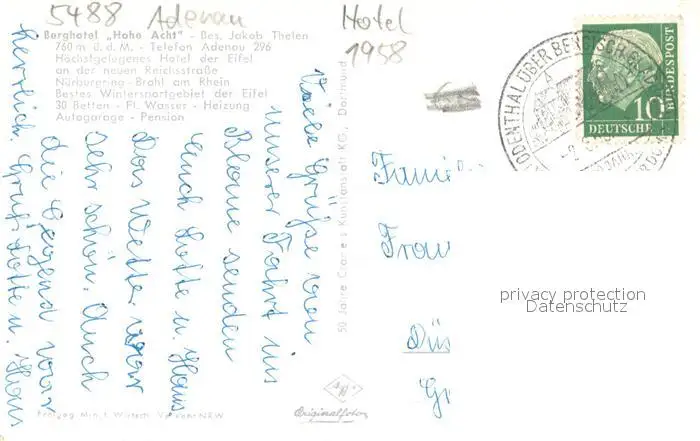 5488 Adenau
Hotel
1958
Berghotel „Hohe Acht" - Bes. Jakob Thelen
760 m ü. d. M. - Telefon Adenau 296
Höchstgelegenes Hotel der Eifel
an der neuen Reichsstraße
Nürburgring-Brohl am Rhein
Bestes Wintersportgebiet der Eifel
30 Betten - Fl. Wasser - Heizung
Autogarage - Pension
Viele Grüße von
unserer Fahrt ins
Blaue senden
Euch Lotte u. Hans
Das Wetter war
sehr schön. Auch
die Gegend war
herrlich. Gruß Lotte u. Hans
50 Jahre Crame s Kunstanstalt KG., Dortmund
Freigeg. Min. f. Wirtsch. Verk. NRW
Originalfoto
Famil
Frau
Düs
Gr
ODENTHAL ÜBER BERGISCH GLA
DEUTSCHE BUNDESPOST
10
privacy protection
Datenschutz